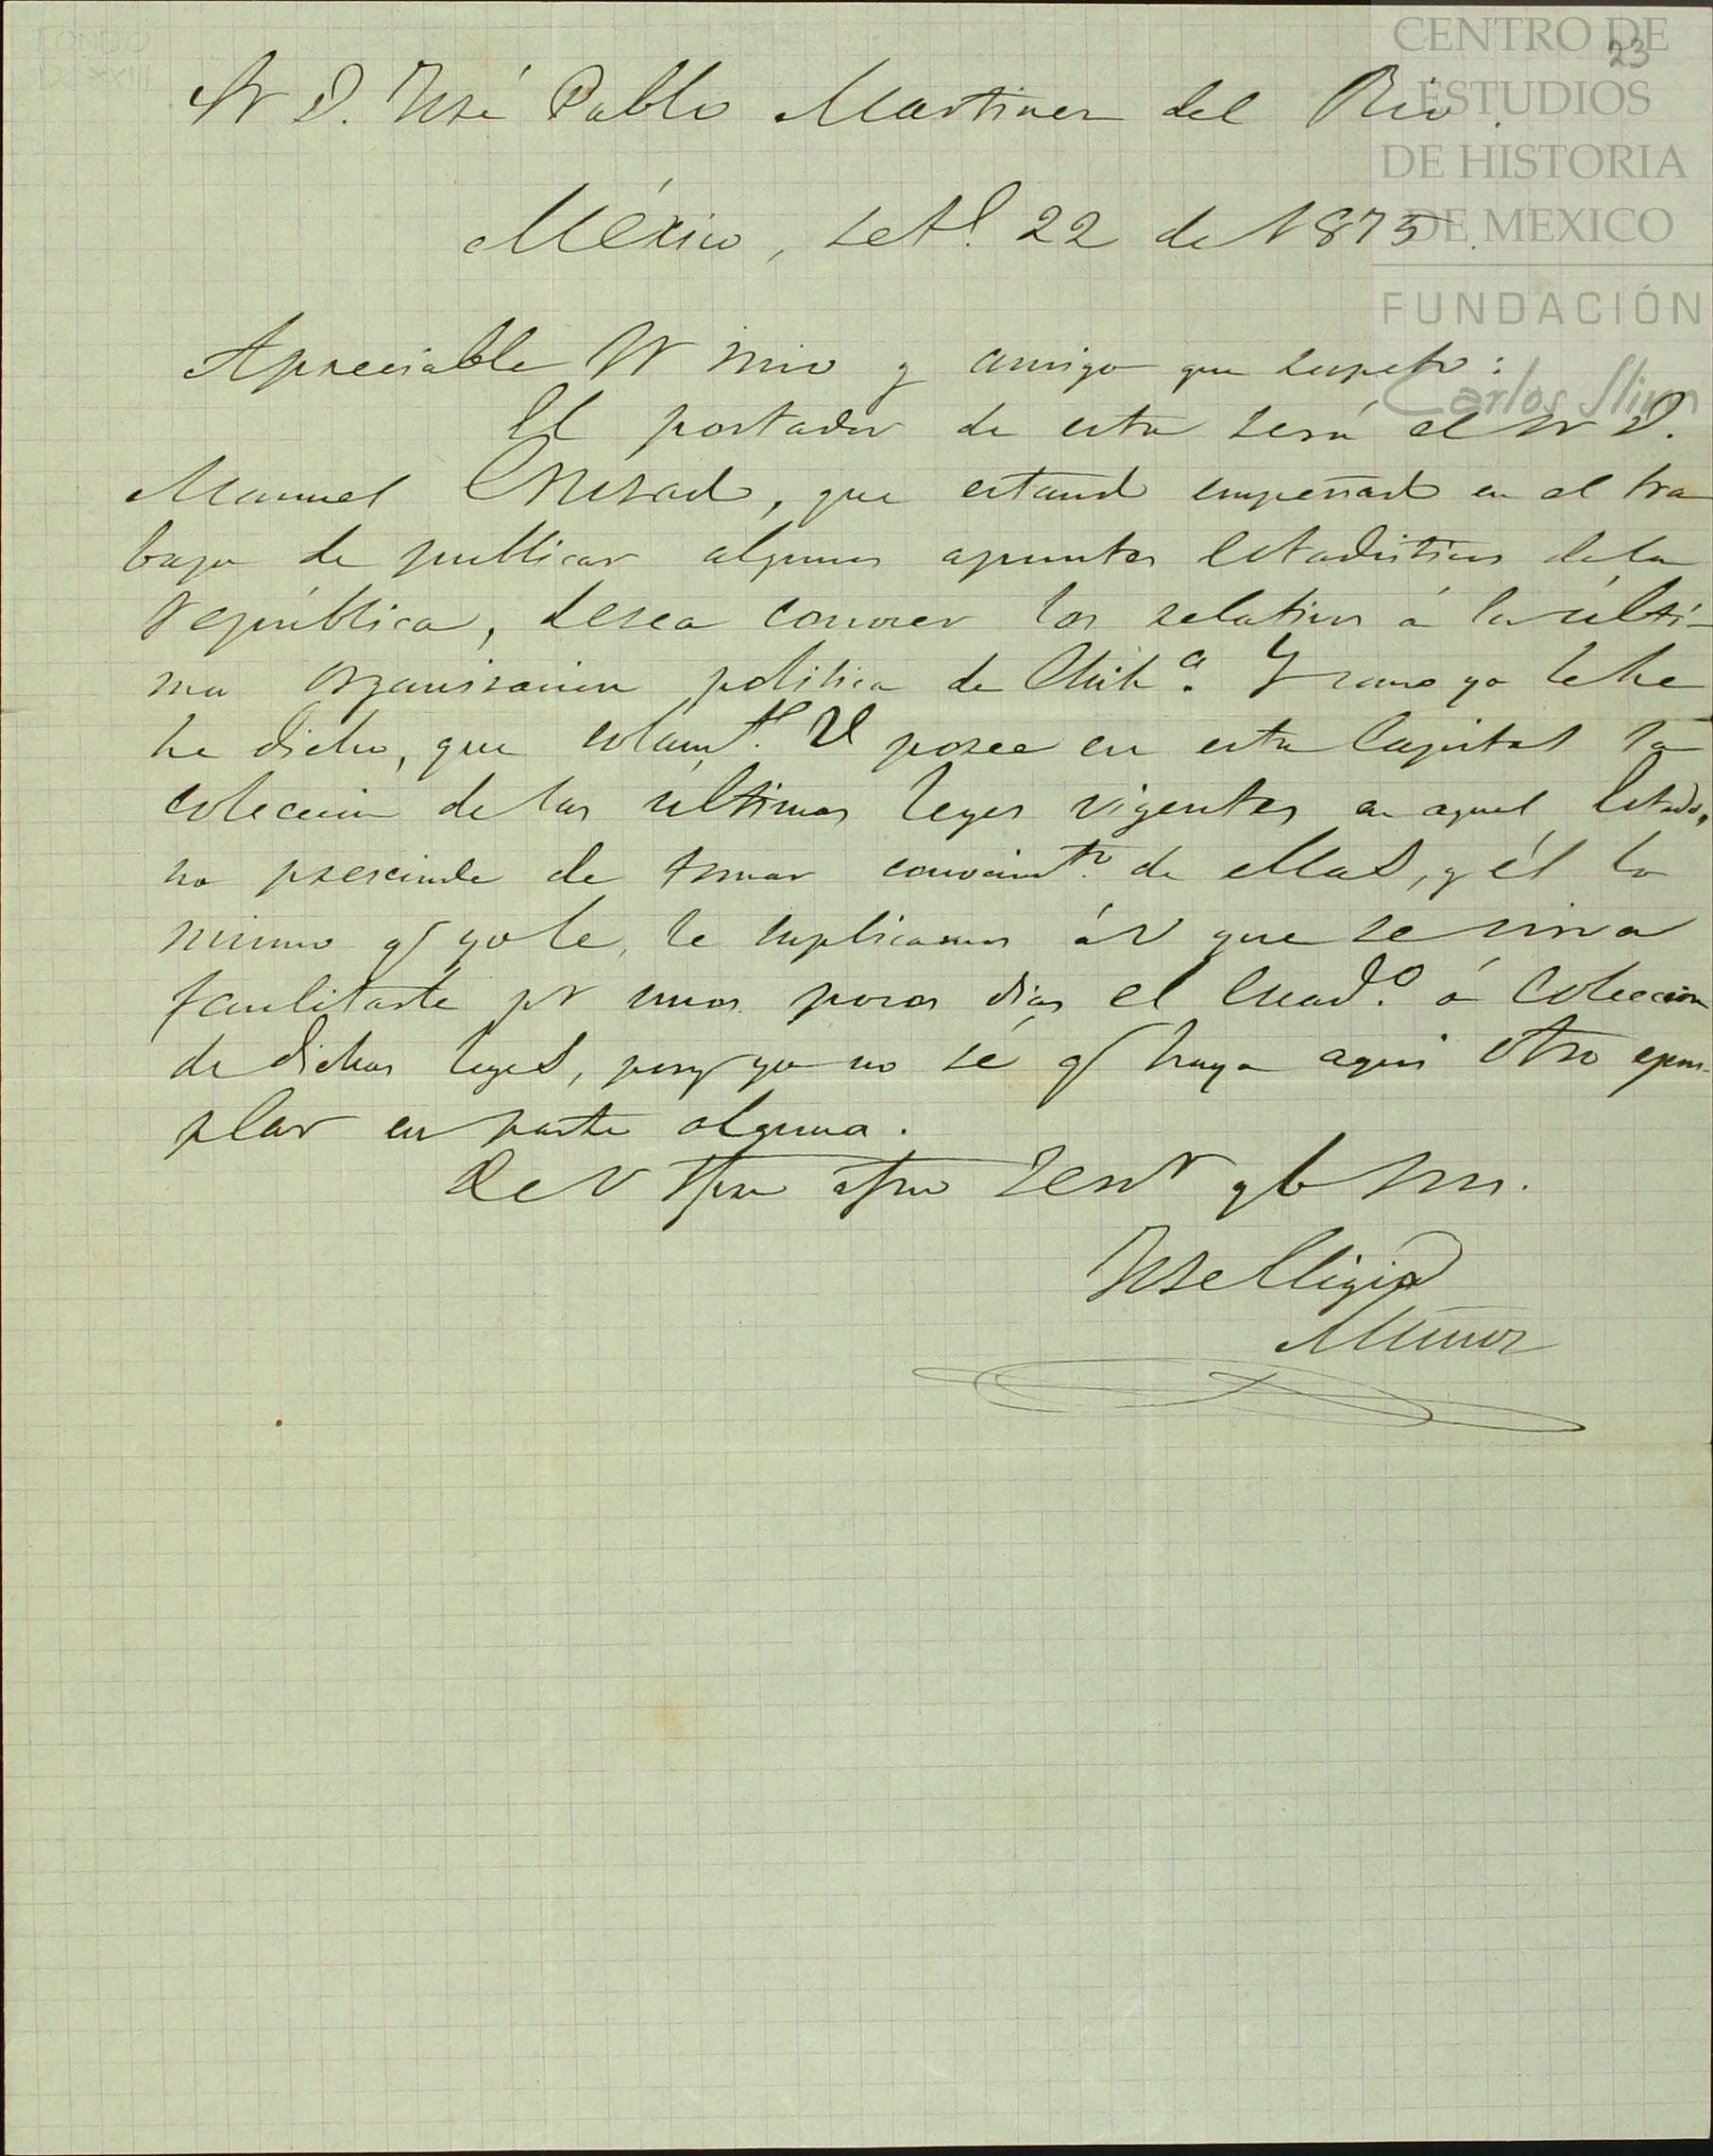 FONDO
DCXXIII
23
CENTRO DE
ESTUDIOS
DE HISTORIA
DE MEXICO
FUNDACIÓN
Carlos Slim
Sr D. José Pablo Martinez del Rio.
México, set.e 22 de 1875.
Apreciable Sr mio y amigo que respeto:
El portador de esta será el Sr D.
Manuel, que estando empeñado en el tra
bajo de publicar algunos apuntes estadisticos de la
República, desea conocer los relativos á la últi-
ma organizacion politica de Chih.a Y como yo le he
he dicho, que solam.te U posee en esta Capital la
coleccion de las últimas leyes vigentes en aquel Estado,
no prescinde de tomar conocim.to de ellas, y él lo
mismo q yo le, le suplicamos á V que se sirva
facilitarle pr unos pocos dias el cuad.o ó coleccion
de dichas leyes, porq yo no sé q haya aqui otro ejem-
plar en parte alguna.
De V afmo servr q b s m.
José Eligio
Muñoz